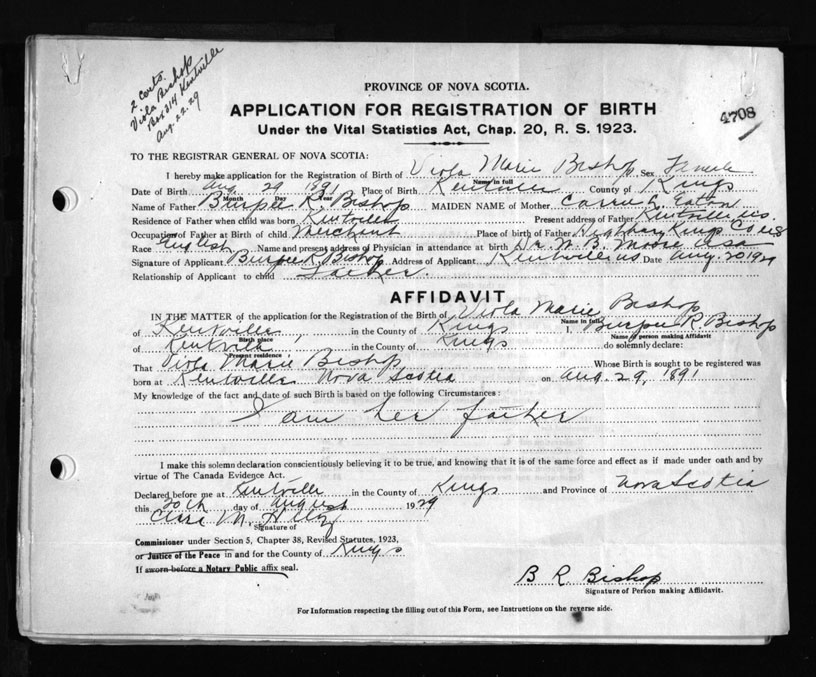 2 certs.
Viola Bishop
Box 314 Kentville
Aug. 22. 29
PROVINCE OF NOVA SCOTIA.
APPLICATION FOR REGISTRATION OF BIRTH
4708
Under the Vital Statistics Act, Chap. 20, R. S. 1923.
TO THE REGISTRAR GENERAL OF NOVA SCOTIA:
I hereby make application for the Registration of Birth of Viola Marie Bishop Sex Female
Name in full
Date of Birth Aug 29 1891 Place of Birth Kentville County of Kings
Month Day Year
Name of Father Burpee R. Bishop MAIDEN NAME of Mother Carrie Eaton
Residence of Father when child was born Kentville Present address of Father Kentville NS.
Occupation of Father at Birth of child Merchant Place of birth of Father Highbury Kings Co NS
Race English Name and present address of Physician in attendance at birth Dr. W. B. Moore
Signature of Applicant Burpee R. Bishop Address of Applicant Kentville NS Date Aug. 20 1929
Relationship of Applicant to child Father.
AFFIDAVIT
IN THE MATTER of the application for the Registration of the Birth of Viola Marie Bishop
Name in full
of Kentville, in the County of Kings I, Burpee R. Bishop
Birth place Name of person making Affidavit
of Kentville in the County of Kings do solemnly declare:
Present residence
That Viola Marie Bishop Whose Birth is sought to be registered was
born at Kentville Nova Scotia on Aug. 29, 1891
My knowledge of the fact and date of such Birth is based on the following Circumstances:
I am her father
I make this solemn declaration conscientiously believing it to be true, and knowing that it is of the same force and effect as if made under oath and by
virtue of The Canada Evidence Act.
Declared before me at Kentville in the County of Kings and Province of Nova Scotia
this 20th day of August 1929
M.
Signature of
Commissioner under Section 5, Chapter 38, Revised Statutes, 1923,
or Justice of the Peace in and for the County of Kings
If sworn before a Notary Public affix seal.
B R Bishop
Signature of Person making Affidavit.
For Information respecting the filling out of this Form, see Instructions on the reverse side.